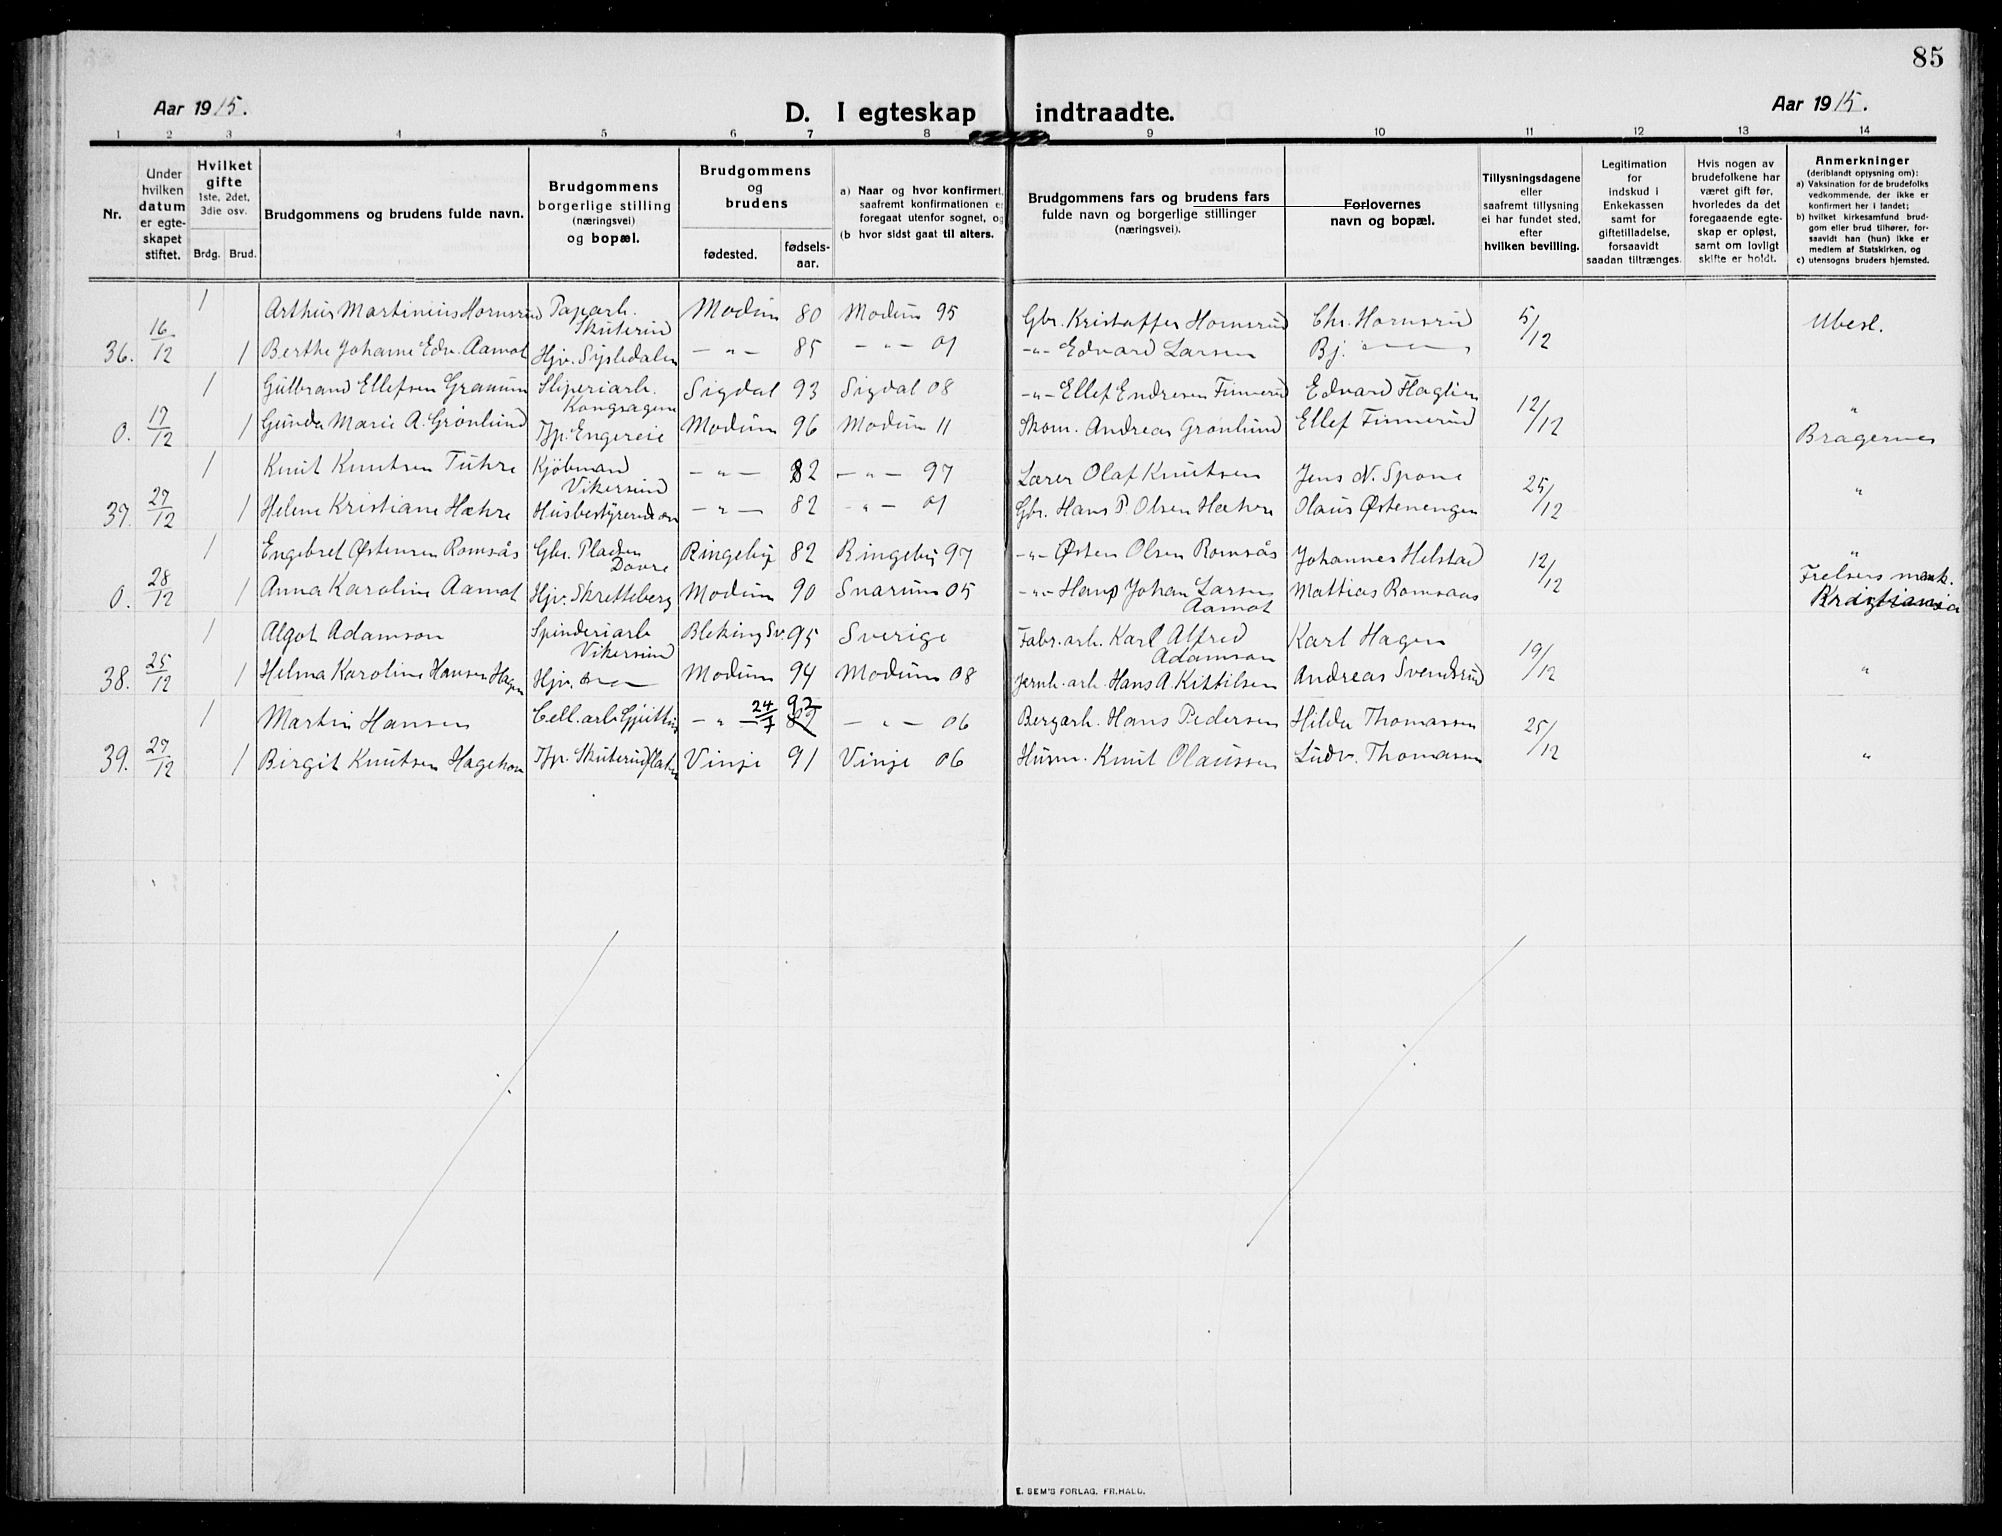 85
Aar 1915.
D. I egteskap indtraadte.
Aar 1915.
1 2 3 4 5 6 7 8 9 10 11 12 13 14
Nr.
Under hvilken datum er egte-skapet stiftet.
Hvilket gifte 1ste, 2det, 3die osv.
Brdg. Brud.
Brudgommens og brudens fulde navn.
Brudgommens borgerlige stilling (næringsvei) og bopæl.
Brudgommens og brudens
fødested. fødsels-aar.
a) Naar og hvor konfirmert, saafremt konfirmationen er foregaat utenfor sognet, og
(b hvor sidst gaat til alters.
Brudgommens fars og brudens fars fulde navn og borgerlige stillinger (næringsvei).
Forlovernes navn og bopæl.
Tillysningsdagene eller saafremt tillysning ei har fundet sted, efter hvilken bevilling.
Legitimation for indskud i Enkekassen samt for giftetilladelse, forsaavidt saadan tiltrænges.
Hvis nogen av brudefolkene har været gift før, hvorledes da det foregaaende egte-skap er opløst, samt om lovligt skifte er holdt.
Anmerkninger (deriblandt opjysning om):
a) Vaksination for de brudefolks vedkommende, der ikke er konfirmert her i landet;
b) hvilket kirkesamfund brud-gom eller brud tilhører, for-saavidt han (hun) ikke er medlem af Statskirken, og
c) utensogns bruders hjemsted.
1 Arthur Martinius Hornsrud Paparb. Skuterud Modum 80 Modum 95 Gbr. Kristoffer Hornsrud Chr. Hornsrud 5/12 Ubesl.
36. 16/12 1 Berthe Johanne Edv. Aamot Hjv. Sysledalen -"- 85 -"- 01 -"- Edvard Larsen Bj. -"-
1 Gulbrand Ellefsen Granum Sliperiarb. Kongsagene Sigdal 93 Sigdal 08 -"- Ellef Endresen Finnerud Edvard Haglien 12/12 "
0. 17/12 1 Gunda Marie A. Grønlund Tjp. Engereie Modum 96 Modum 11 Skom. Andreas Grønlund Ellef Finnerud Bragernes
1 Knut Knutsen Tuhre Kjøbmand Vikersund -"- 82 -"- 97 Lærer Olaf Knutsen Jens N. Spone 25/12 "
37. 27/12 1 Helene Kristiane Hæhre Husbestyrerinde -"- 82 -"- 01 Gbr. Hans P. Olsen Hæhre Olaus Østenengen
1 Engebret Østensen Romsås Gbr. Pladsen Dovre Ringeby 82 Ringeby 97 -"- Østen Olsen Romsås Johannes Helstad 12/12 "
0. 28/12 1 Anna Karoline Aamot Hjv. Skretteberg Modum 90 Snarum 05 -"- Hans Johan Larsen Aamot Mattias Romsaas Frelsers menh. Kristiania
1 Algot Adamson Spinderiarb Vikersund Bleking Sv. 95 Sverige Fabr. arb. Karl Alfred Adamson Karl Hagen 19/12
38. 25/12 1 Helma Karoline Hansen Hagen Hjv. -"- Modum 94 Modum 08 Jernb. arb. Hans A. Kittilsen Andreas Svendsrud "
1 Martin Hansen Cell. arb. -"- 24/7 92 -"- 06 Bergarb. Hans Pedersen Hilda Thomassen 25/12
39. 27/12 1 Birgit Knutsen Hagehon Tjp. Skuterudflaten Vinje 91 Vinje 06 Husm. Knut Olaussen Ludv. Thomassen "
E. SEM'S FORLAG, FR.HALD.